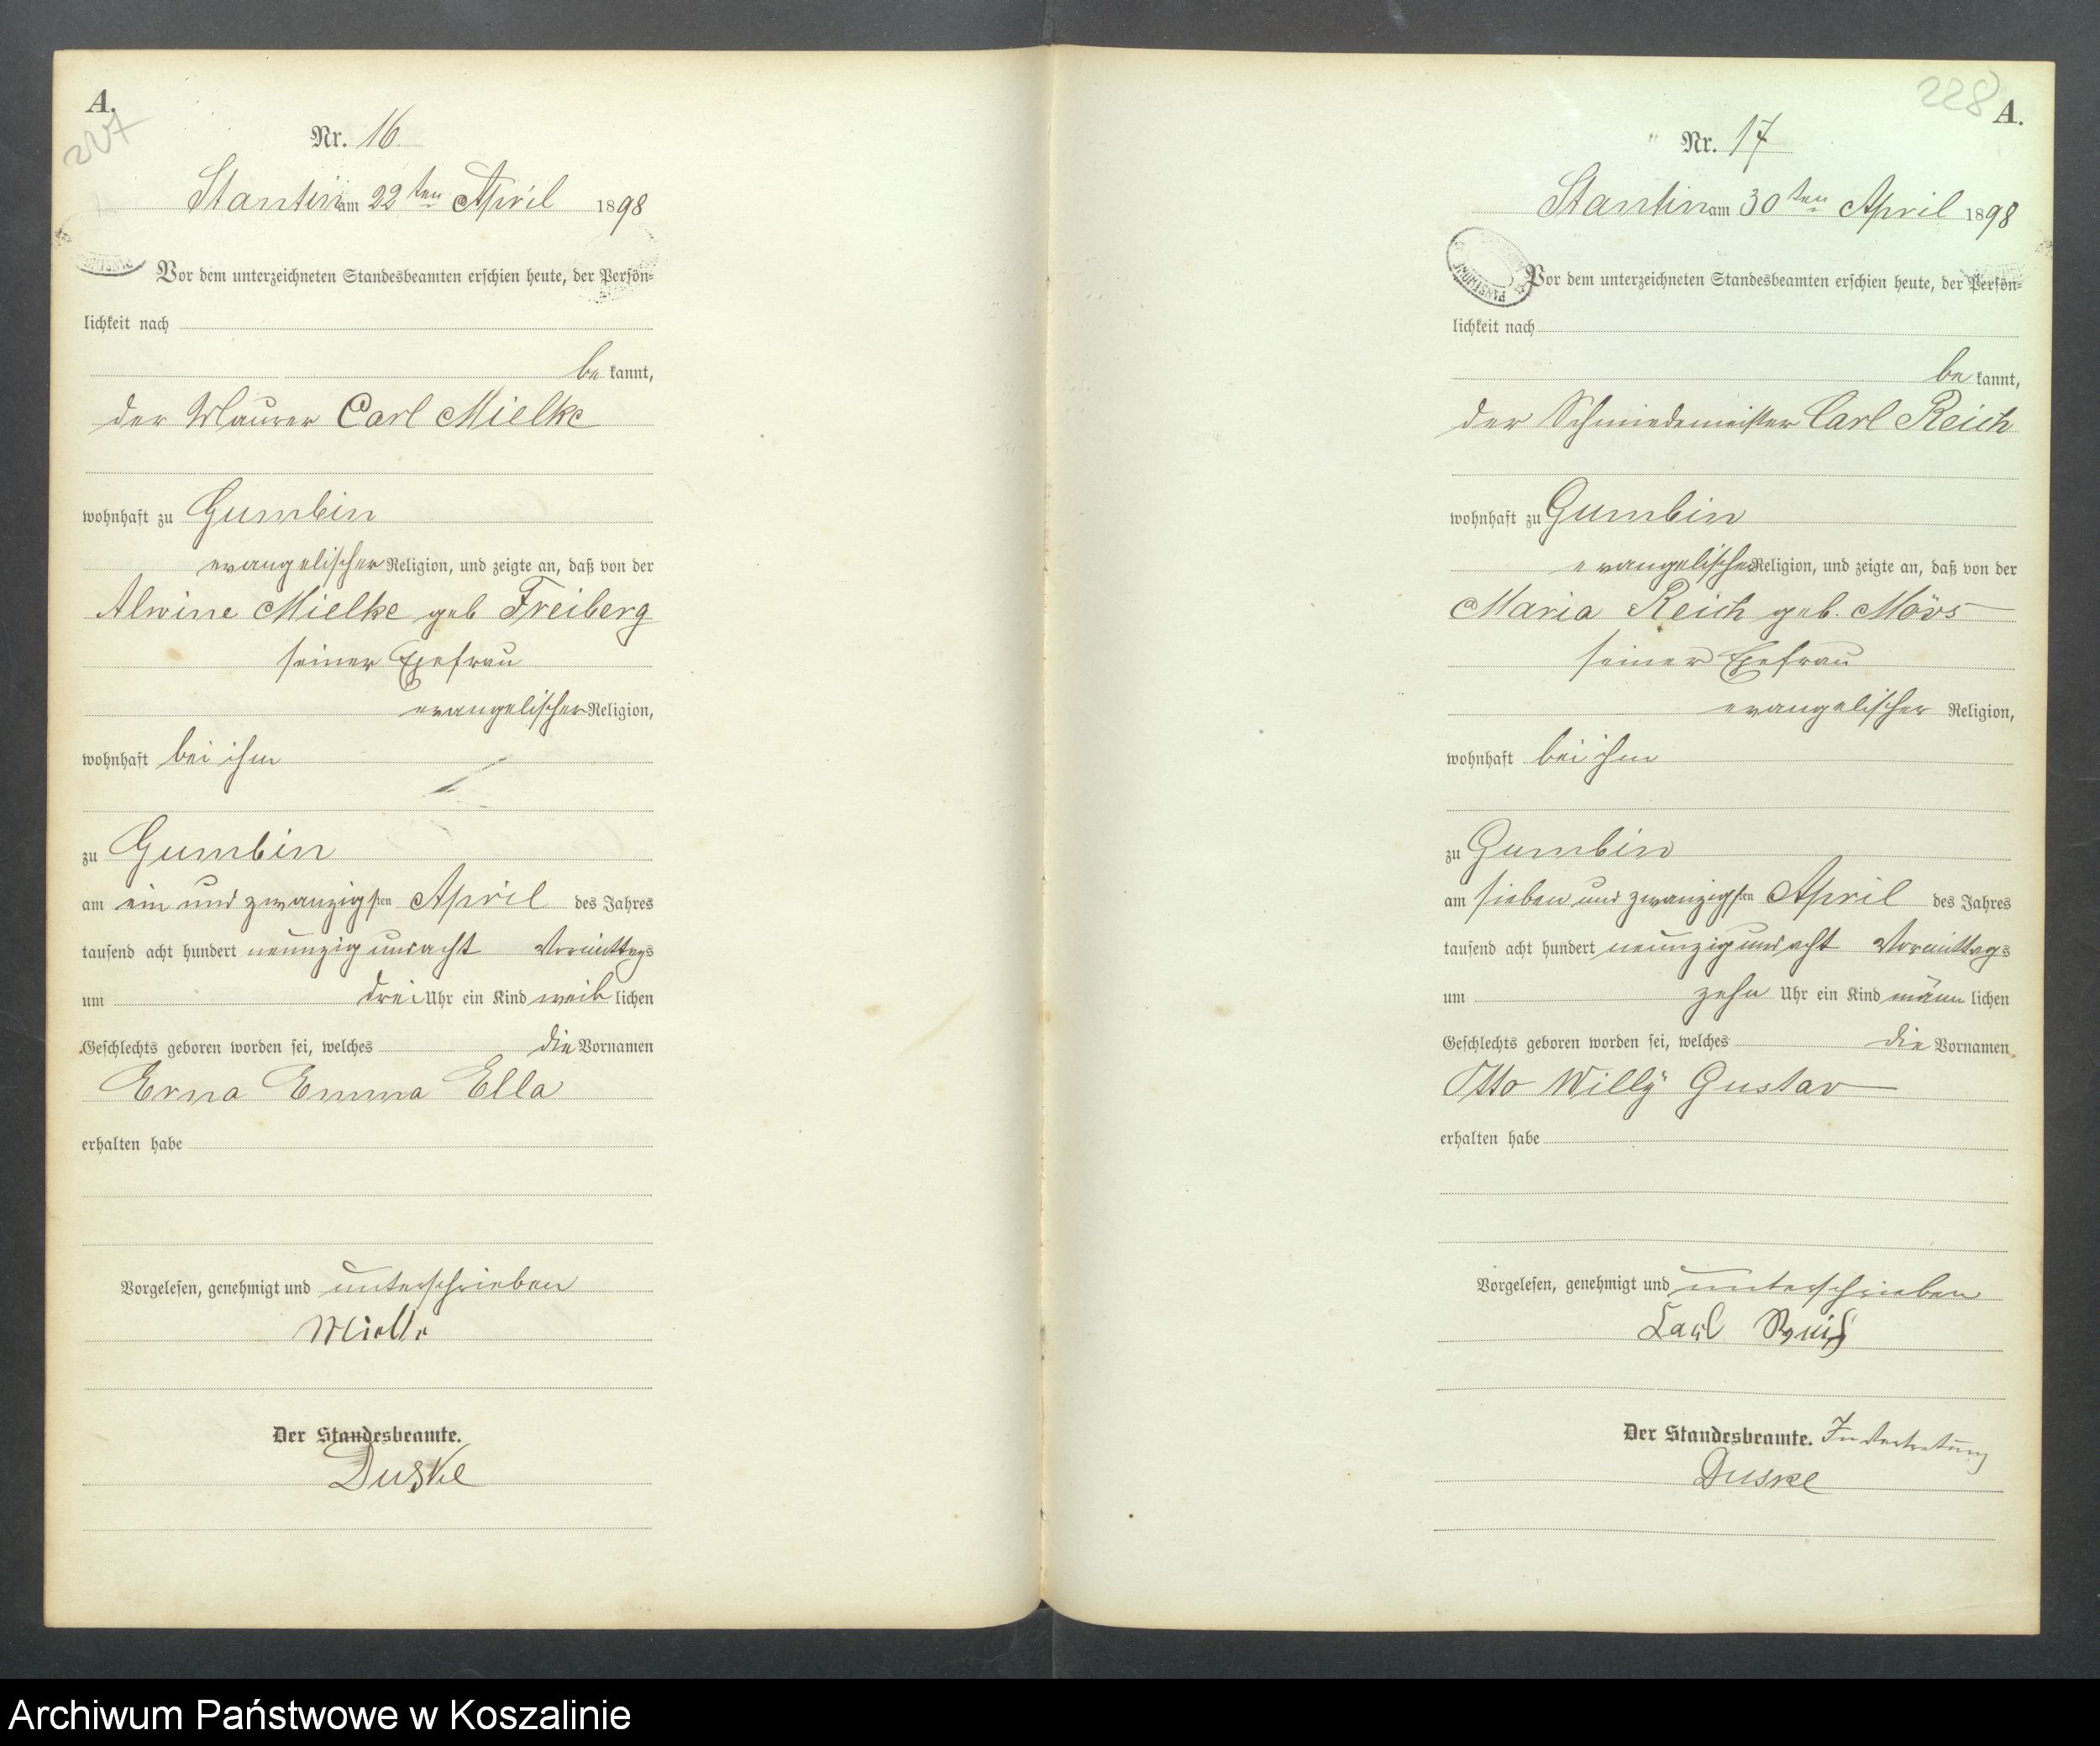 A.
227
Nr. 16.
Stantin am 22ten April 1898
Vor dem unterzeichneten Standesbeamten erschien heute, der Persön-
lichkeit nach
be kannt,
der Maurer Carl Mielke
wohnhaft zu Gumbin
evangelischer Religion, und zeigte an, daß von der
Alwine Mielke geb Freiberg
seiner Ehefrau
evangelischer Religion,
wohnhaft bei ihm
zu Gumbin
am ein und zwanzigsten April des Jahres
tausend acht hundert neunzig und acht Vormittags
um drei Uhr ein Kind weib lichen
Geschlechts geboren worden sei, welches die Vornamen
Erna Emma Ella
erhalten habe
Vorgelesen, genehmigt und unterschrieben
Mielke
Der Standesbeamte.
Duske
228
A.
Nr. 17
Stantin am 30ten April 1898
Vor dem unterzeichneten Standesbeamten erschien heute, der Persön-
lichkeit nach
be kannt,
der Schmiedemeister Carl Reich
wohnhaft zu Gumbin
evangelischer Religion, und zeigte an, daß von der
Maria Reich geb. Mövs
seiner Ehefrau
evangelischer Religion,
wohnhaft bei ihm
zu Gumbin
am sieben und zwanzigsten April des Jahres
tausend acht hundert neunzig und acht Vormittags
um zehn Uhr ein Kind männ lichen
Geschlechts geboren worden sei, welches die Vornamen
Otto Willÿ Gustav
erhalten habe
Vorgelesen, genehmigt und unterschrieben
Carl Reich
Der Standesbeamte. In Vertretung
Duske
Archiwum Państwowe w Koszalinie